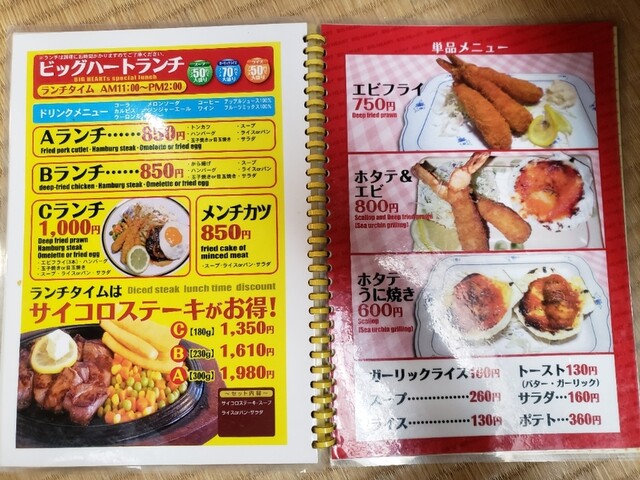 ※ランチは調理にお時間かかりますのでご了承ください。
ビッグハートランチ
BIG HEARTs special lunch
ランチタイム AM11:00～PM2:00
50円
70円
50円
ドリンクメニュー
コーラ メロンソーダ コーヒー アップルジュース100%
カルピス ジンジャーエール ワイン
Aランチ……850円
・トンカツ ・スープ
・ハンバーグ ・ライスorパン
・玉子焼きor目玉焼き ・サラダ
Fried pork cutlet・Hamburg steak・Omelette or fried egg
Bランチ……850円
・から揚げ ・スープ
・ハンバーグ ・ライスorパン
・玉子焼きor目玉焼き ・サラダ
deep-fried chicken・Hamburg steak・Omelette or fried egg
Cランチ
1,000円
Deep fried prawn
Hamburg steak
Omelette or fried egg
・エビフライ(1本)・ハンバーグ
・玉子焼きor目玉焼き
・スープ・ライスorパン・サラダ
メンチカツ
850円
fried cake of
minced meat
・スープ・ライスorパン・サラダ
ランチタイムは Diced steak lunch time discount
サイコロステーキがお得!
C【180g】1,350円
B【230g】1,610円
A【300g】1,980円
～セット内容～
サイコロステーキ・スープ
ライスorパン・サラダ
単品メニュー
エビフライ
750円
Deep fried prawn
ホタテ&
エビ
800円
Scallop and Deep fried prawn
(Sea urchin grilling)
ホタテ
うに焼き
600円
Scallop
(Sea urchin grilling)
ガーリックライス
トースト130円
(バター・ガーリック)
スープ……260円
サラダ…160円
ライス……130円
ポテト…360円